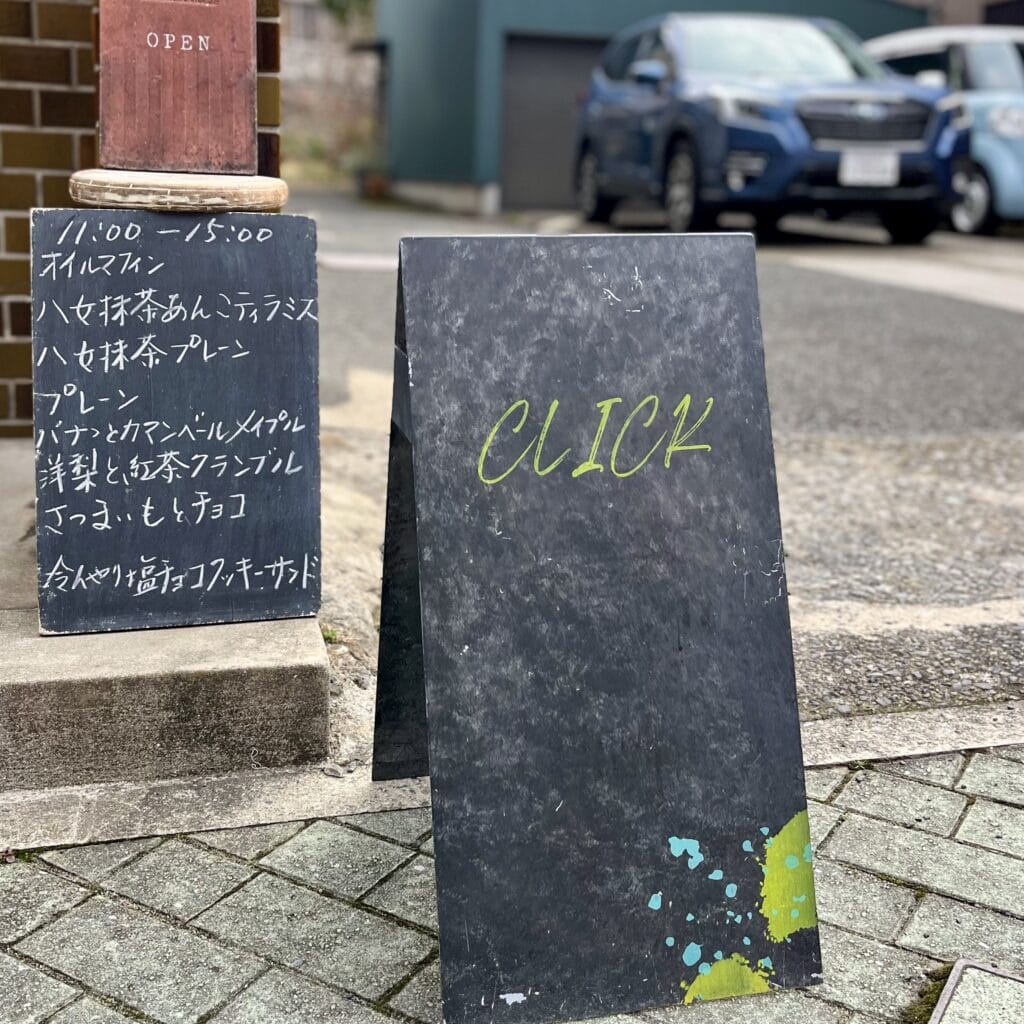 OPEN
11:00-15:00
オイルマフィン
八女抹茶あんこティラミス
八女抹茶プレーン
プレーン
バナナとカマンベールメイプル
洋梨と紅茶クランブル
さつまいもとチョコ
冷んやり塩チョコクッキーサンド
CLICK